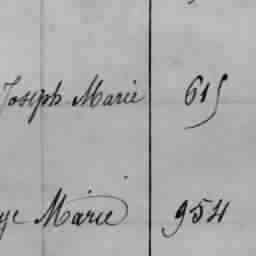 Joseph Marie 615
ye Marie 954